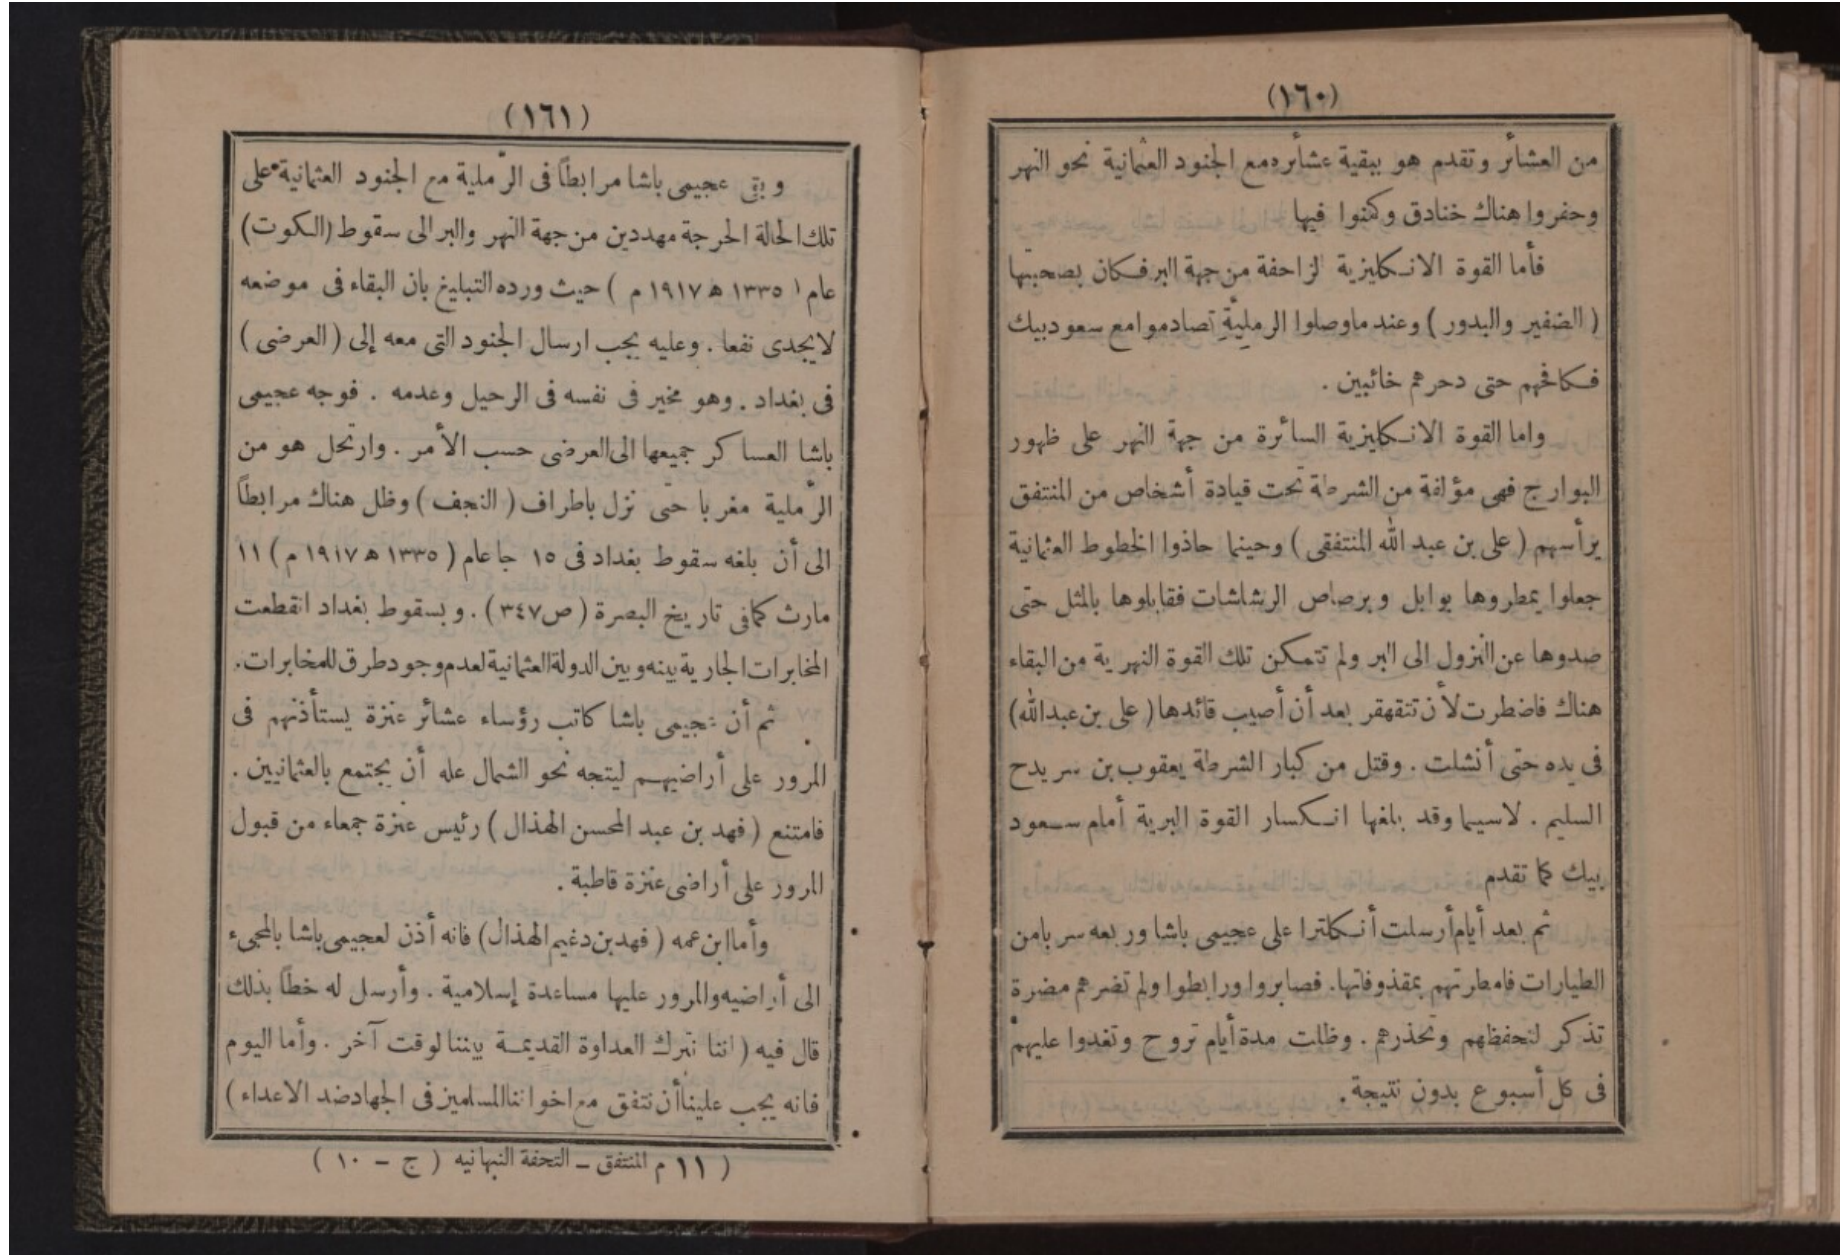 (١٦٠)
من العشائر وتقدم هو ببقية عشائره مع الجنود العثمانية نحو النهر
وحفروا هناك خنادق وكمنوا فيها
فأما القوة الانكليزية الزاحفة من جهة البر فكان بصحبتها
( الضفير والبدور ) وعند ماوصلوا الرمليَّةِ تصادموا مع سعود بيك
فكافحهم حتى دحرهم خائبين .
واما القوة الانكليزية السائرة من جهة النهر على ظهور
البوارج فهى مؤلفة من الشرطة تحت قيادة أشخاص من المنتفق
يرأسهم ( على بن عبد الله المنتفقى ) وحينما حاذوا الخطوط العثمانية
جعلوا يمطروها بوابل وبرصاص الرشاشات فقابلوها بالمثل حتى
صدوها عن النزول الى البر ولم تتمكن تلك القوة النهرية من البقاء
هناك فاضطرت لأن تتقهقر بعد أن أصيب قائدها ( على بن عبدالله)
فى يده حتى أنشلت . وقتل من كبار الشرطة يعقوب بن سريدح
السليم . لاسيما وقد بلغها انكسار القوة البرية أمام سعود
بيك كما تقدم
ثم بعد أيام أرسلت أنكلترا على عجيمى باشا وربعه سربا من
الطيارات فامطرتهم بمقذوفاتها. فصابروا ورابطوا ولم تضرهم مضرة
تذكر لتحفظهم وتحذرهم . وظلت مدة أيام تروح وتغدوا عليهم
فى كل أسبوع بدون نتيجة .
(١٦١)
وبقى عجيمى باشا مرابطاً فى الرَّملية مع الجنود العثمانية على
تلك الحالة الحرجة مهددين من جهة النهر والبر الى سقوط (الكوت)
عام ( ١٣٣٥ ه ١٩١٧ م ) حيث ورده التبليغ بان البقاء فى موضعه
لايجدى نفعا . وعليه يجب ارسال الجنود التى معه إلى ( العرضى )
فى بغداد . وهو مخير فى نفسه فى الرحيل وعدمه . فوجه عجيمى
باشا العساكر جميعها الى العرضى حسب الأمر . وارتحل هو من
الرَّملية مغربا حتى نزل باطراف ( النجف ) وظل هناك مرابطاً
الى أن بلغه سقوط بغداد فى ١٥ جا عام ( ١٣٣٥ ه ١٩١٧ م ) ١١
مارث كمافى تاريخ البصرة ( ص ٣٤٧ ) . وبسقوط بغداد انقطعت
المخابرات الجارية بينه وبين الدولة العثمانية لعدم وجود طرق للمخابرات.
ثم أن عجيمى باشا كاتب رؤساء عشائر عنزة يستأذنهم فى
المرور على أراضيهم ليتجه نحو الشمال عله أن يجتمع بالعثمانيين .
فامتنع ( فهد بن عبد المحسن الهذال ) رئيس عنزة جمعاء من قبول
المرور على أراضى عنزة قاطبة .
وأما ابن عمه ( فهد بن دغيم الهذال) فانه أذن لعجيمى باشا بالمجىء
الى أراضيه والمرور عليها مساعدة إسلامية . وأرسل له خطاً بذلك
قال فيه ( اننا نترك العداوة القديمة بيننا لوقت آخر . وأما اليوم
فانه يجب علينا أن نتفق مع اخواننا المسلمين فى الجهاد ضد الاعداء )
( ١١ م المنتفق ــ التحفة النبهانيه ( ج – ١٠ )